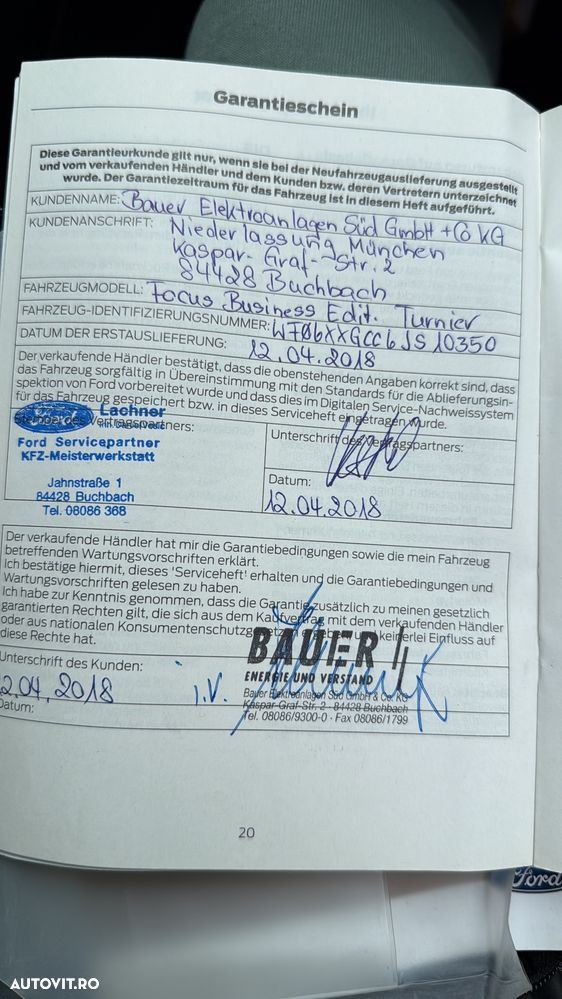 Garantieschein
Diese Garantieurkunde gilt nur, wenn sie bei der Neufahrzeugauslieferung ausgestellt
und vom verkaufenden Händler und dem Kunden bzw. deren Vertretern unterzeichnet
wurde. Der Garantiezeitraum für das Fahrzeug ist in diesem Heft aufgeführt.
KUNDENNAME: Bauer Elektroanlagen Süd GmbH + Co KG
KUNDENANSCHRIFT: Niederlassung München
Kaspar-Graf-Str. 2
84428 Buchbach
FAHRZEUGMODELL: Focus Business Edit. Turnier
FAHRZEUG-IDENTIFIZIERUNGSNUMMER: WF06XXGCC6JS10350
DATUM DER ERSTAUSLIEFERUNG: 12.04.2018
Der verkaufende Händler bestätigt, dass die obenstehenden Angaben korrekt sind, dass
das Fahrzeug sorgfältig in Übereinstimmung mit den Standards für die Ablieferungsin-
spektion von Ford vorbereitet wurde und dass dies im Digitalen Service-Nachweissystem
für das Fahrzeug gespeichert bzw. in dieses Serviceheft eingetragen wurde.
Stempel des Vertragspartners:
Lachner
Ford Servicepartner
KFZ-Meisterwerkstatt
Jahnstraße 1
84428 Buchbach
Tel. 08086 368
Unterschrift des Vertragspartners:
Datum:
12.04.2018
Der verkaufende Händler hat mir die Garantiebedingungen sowie die mein Fahrzeug
betreffenden Wartungsvorschriften erklärt.
Ich bestätige hiermit, dieses 'Serviceheft' erhalten und die Garantiebedingungen und
Wartungsvorschriften gelesen zu haben.
Ich habe zur Kenntnis genommen, dass die Garantie zusätzlich zu meinen gesetzlich
garantierten Rechten gilt, die sich aus dem Kaufvertrag mit dem verkaufenden Händler
oder aus nationalen Konsumentenschutzgesetzen ergeben und keinerlei Einfluss auf
diese Rechte hat.
Unterschrift des Kunden:
12.04.2018
i.V.
Datum:
BAUER
ENERGIE UND VERSTAND
Bauer Elektroanlagen Süd GmbH & Co. KG
Kaspar-Graf-Str. 2 · 84428 Buchbach
Tel. 08086/9300-0 · Fax 08086/1799
20
Ford
AUTOVIT.RO